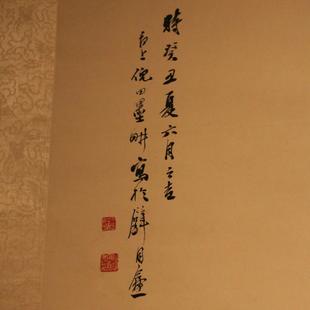 時癸丑夏六月之吉
邗上倪田墨畊寫於璧月盦